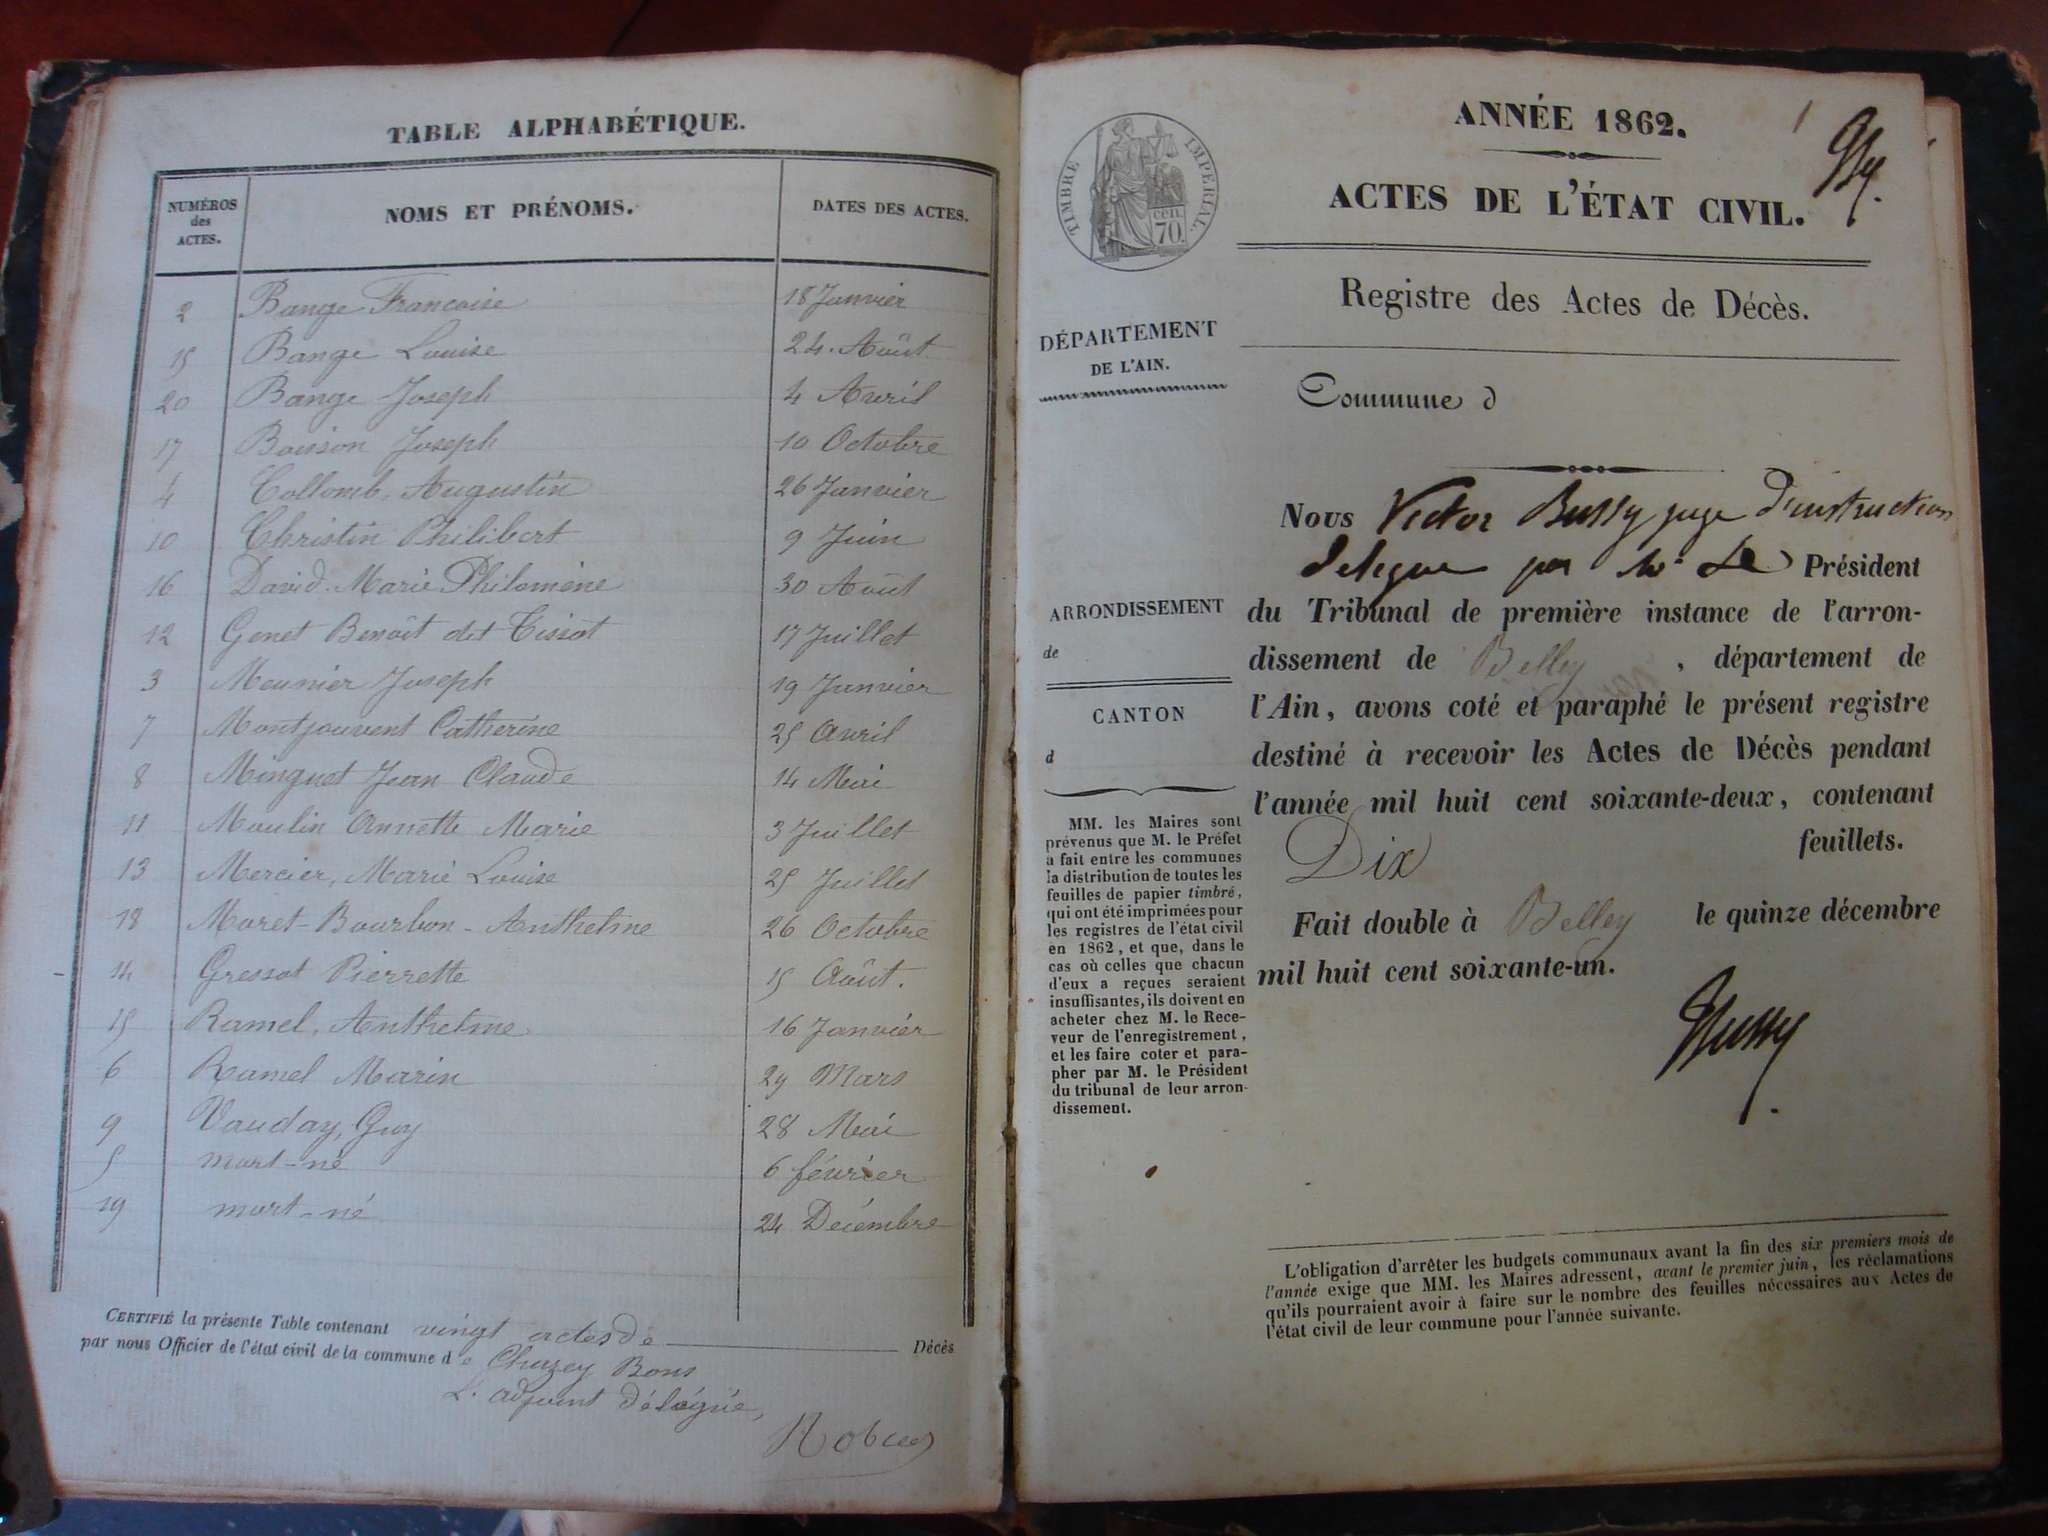 TABLE ALPHABÉTIQUE.
NUMÉROS des ACTES. NOMS ET PRÉNOMS. DATES DES ACTES.
2 Bange Francoise 18 Janvier
15 Bange Louise 24. Août
20 Bange Joseph 4 Avril
17 Boisson Joseph 10 Octobre
4 Collomb, Augustin 26 Janvier
10 Christin Philibert 9 Juin
16 David. Marie Philomène 30 Août
12 Genet Benoît dit Tissot 17 Juillet
3 Meunier Joseph 19 Janvier
7 Montjouvent Catherine 25 Avril
8 Minguet Jean Claude 14 Mai
11 Moulin Annette Marie 3 Juillet
13 Mercier, Marie Louise 25 Juillet
18 Moret-Bourbon-Anthelme 26 Octobre
14 Gressot Pierrette 15 Août.
15 Ramel, Anthelme 16 Janvier
6 Ramel Marin 29 Mars
9 Vauday, Guy 28 Mai
5 mort-né 6 février
19 mort-né 24 Décembre
CERTIFIÉ la présente Table contenant vingt actes de Décès
par nous Officier de l'état civil de la commune de Chazey Bons
L'adjoint délégué,
ANNÉE 1862.
1
ACTES DE L'ÉTAT CIVIL.
TIMBRE IMPÉRIAL.
cen. 70.
Registre des Actes de Décès.
DÉPARTEMENT
DE L'AIN.
Commune d
Nous Victor Bussy juge d'instruction
délégué par Mr Le Président
du Tribunal de première instance de l'arron-
dissement de Belley, département de
l'Ain, avons coté et paraphé le présent registre
destiné à recevoir les Actes de Décès pendant
l'année mil huit cent soixante-deux, contenant
Dix feuillets.
Fait double à Belley le quinze décembre
mil huit cent soixante-un.
Bussy
ARRONDISSEMENT
de
CANTON
d
MM. les Maires sont
prévenus que M. le Préfet
a fait entre les communes
la distribution de toutes les
feuilles de papier timbré,
qui ont été imprimées pour
les registres de l'état civil
en 1862, et que, dans le
cas où celles que chacun
d'eux a reçues seraient
insuffisantes, ils doivent en
acheter chez M. le Rece-
veur de l'enregistrement,
et les faire coter et para-
pher par M. le Président
du tribunal de leur arron-
dissement.
L'obligation d'arrêter les budgets communaux avant la fin des six premiers mois de
l'année exige que MM. les Maires adressent, avant le premier juin, les réclamations
qu'ils pourraient avoir à faire sur le nombre des feuilles nécessaires aux Actes de
l'état civil de leur commune pour l'année suivante.